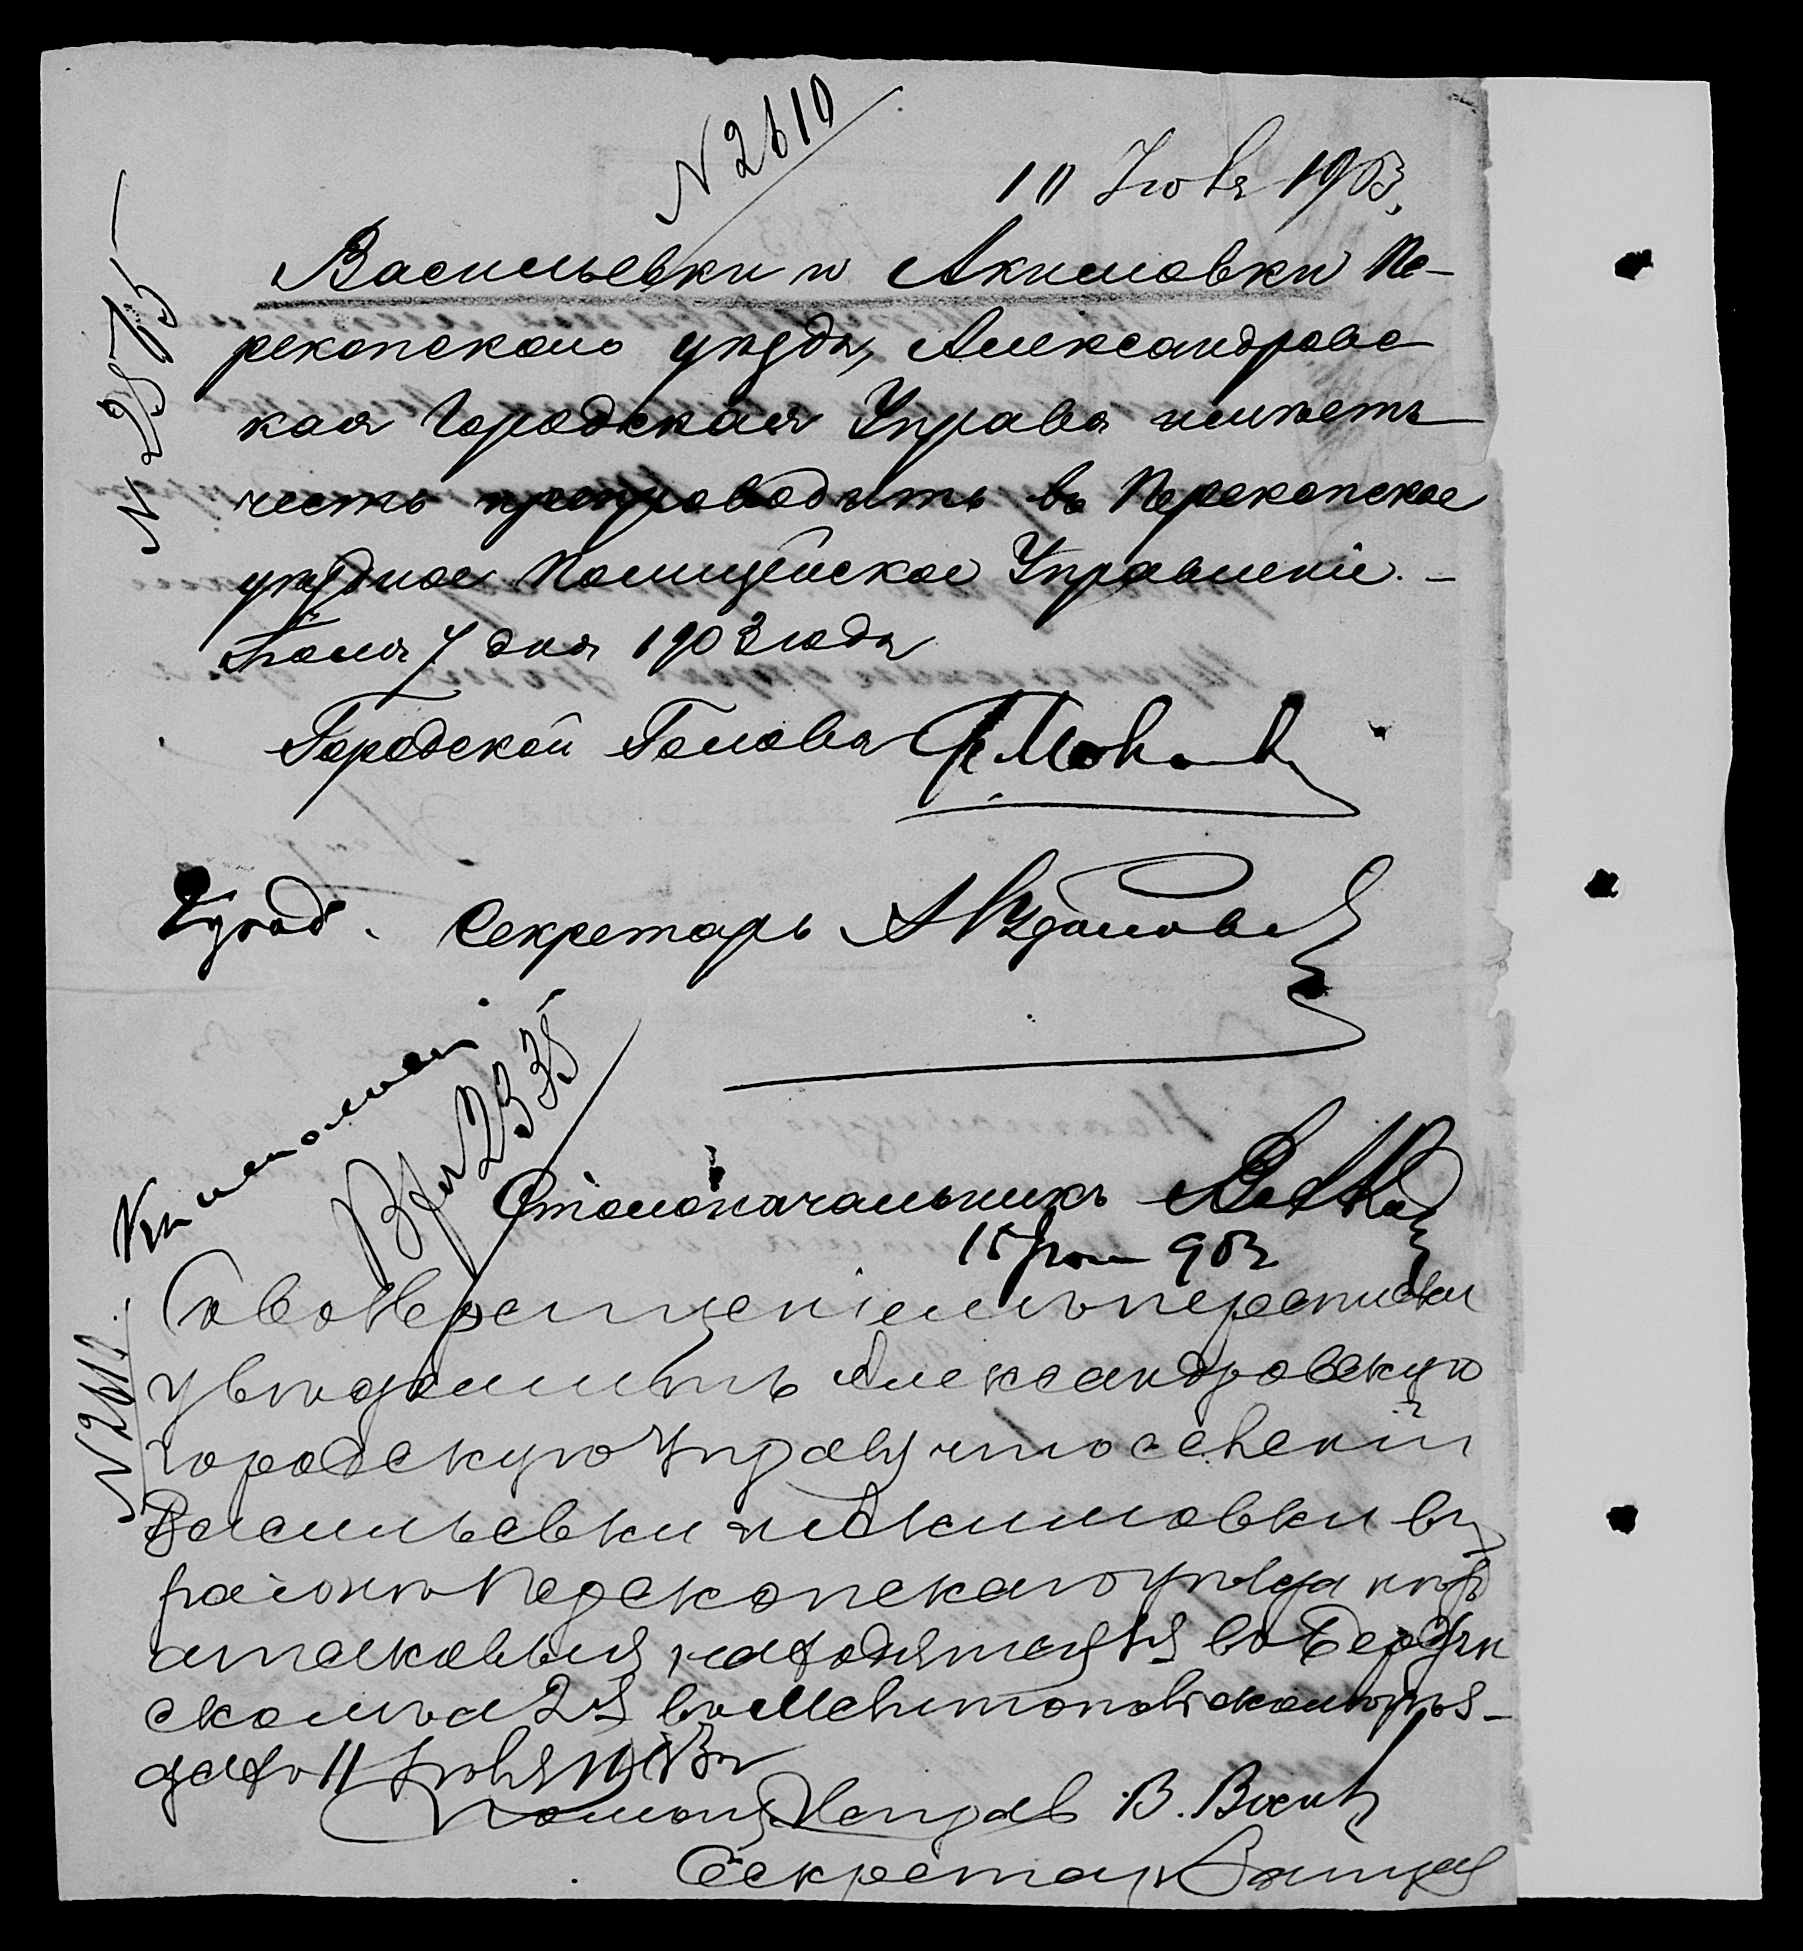 N 2610
10 Июля 1903.
N 2875
Васильевки и Акимовки Пе-
рекопскаго уѣзда, Александровс
кая Городская Управа имѣетъ
честь препроводить въ Перекопское
уѣздное Полицейское Управленіе. -
Іюля 7 дня 1903 года
Городской Голова
Секретарь
Столоначальникъ
Къ исполнен
Вх 2335
903
N 2611
Съ возвращеніемъ переписки
увѣдомить Александровскую
городскую Управу что селеній
Васильевки и Акимовки въ
районѣ Перекопскаго уѣзда нѣтъ
а таковыя находятся 1я въ Бердян
скомъ а 2я въ Мелитопольскомъ уѣз-
дахъ 11 Іюля 1903 г
Помощ Исправ В.
Секретарь